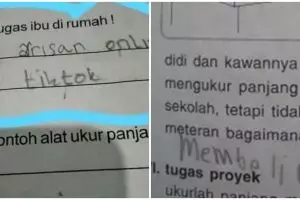 ugas ibu di rumah !
arisan onli
tiktok
ontoh alat ukur panja
didi dan kawannya
mengukur panjang
sekolah, tetapi tidal
meteran bagaiman
Membali
I. tugas proyek
ukurlah panjang